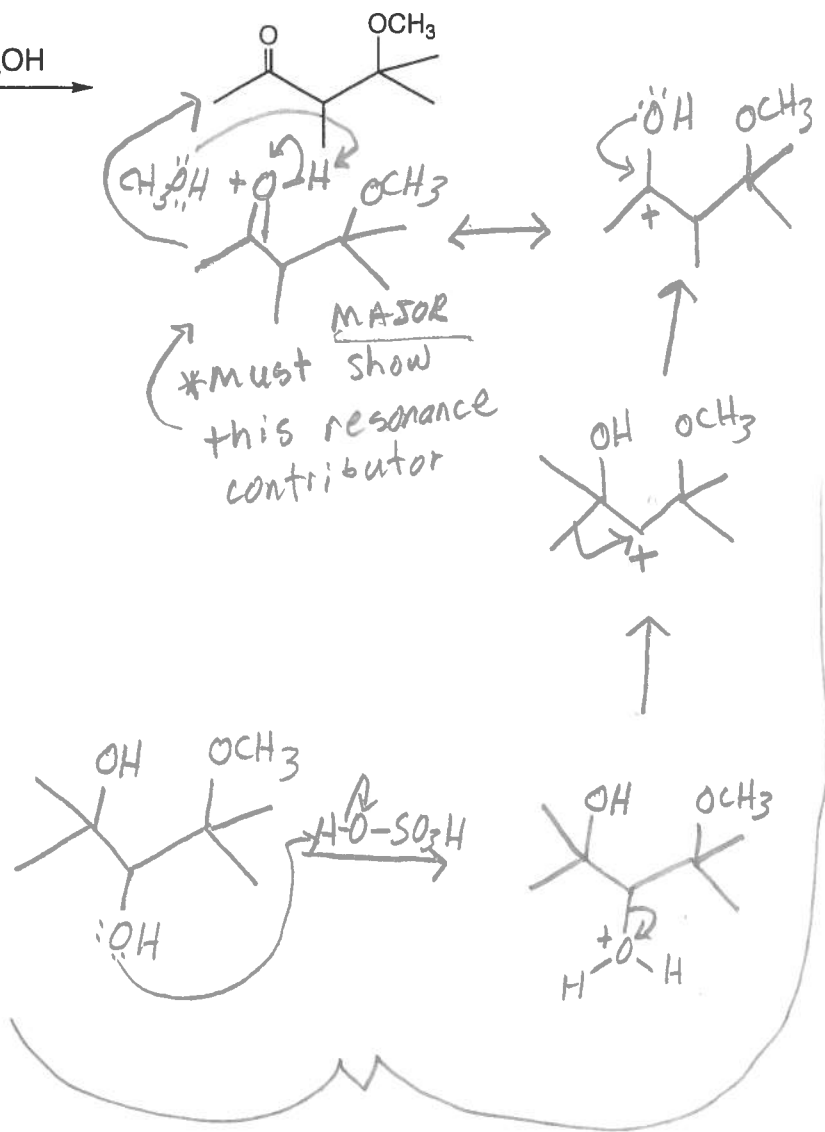 OH
O
OCH3
CH3ÖH + O-H
OCH3
ÖH OCH3
+
MAJOR
*Must show
this resonance
contributor
OH OCH3
+
OH OCH3
H-O-SO3H
OH OCH3
:ÖH
+
O
H H